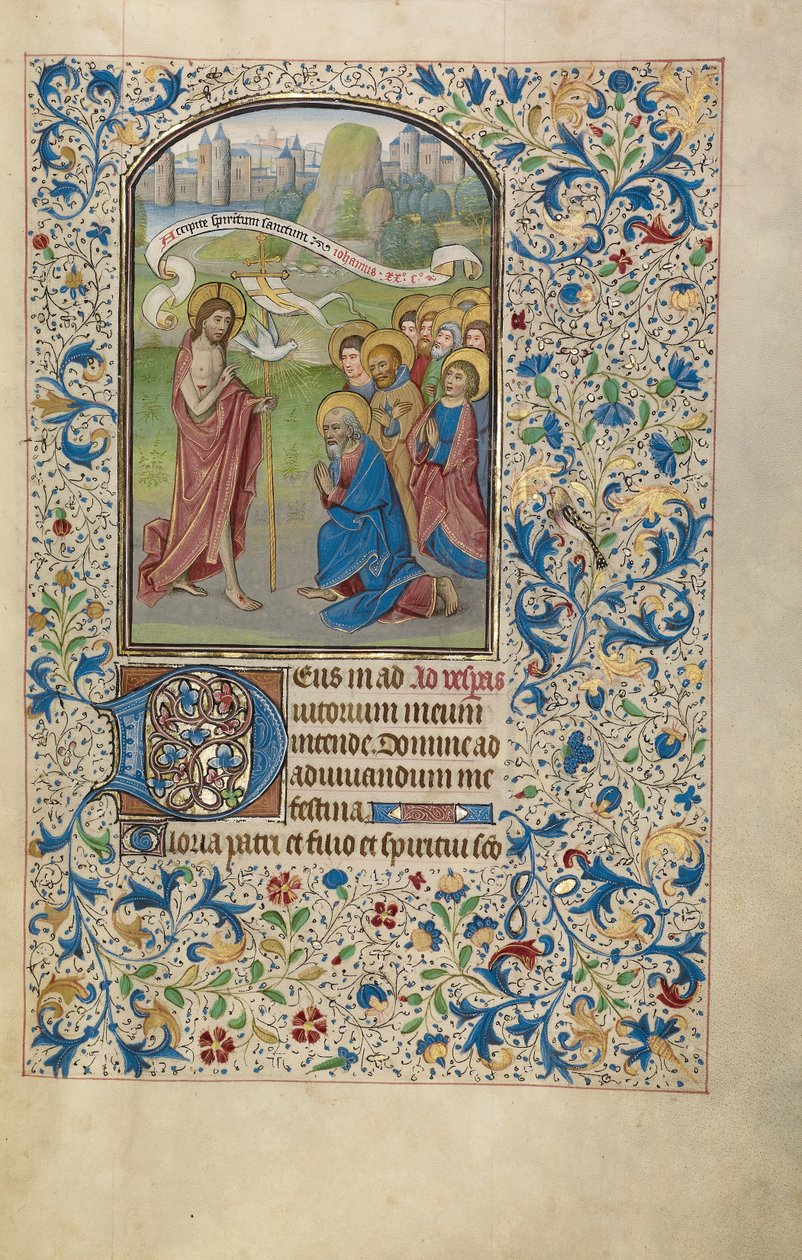 Accipite spiritum sanctum iohannis · xx° · c° ·
Eus in ad Ad vesp̱as
iutorium meum
intende. Domine ad
adiuuandum me
festina.
Gloria patri et filio et spiritui sc̄o